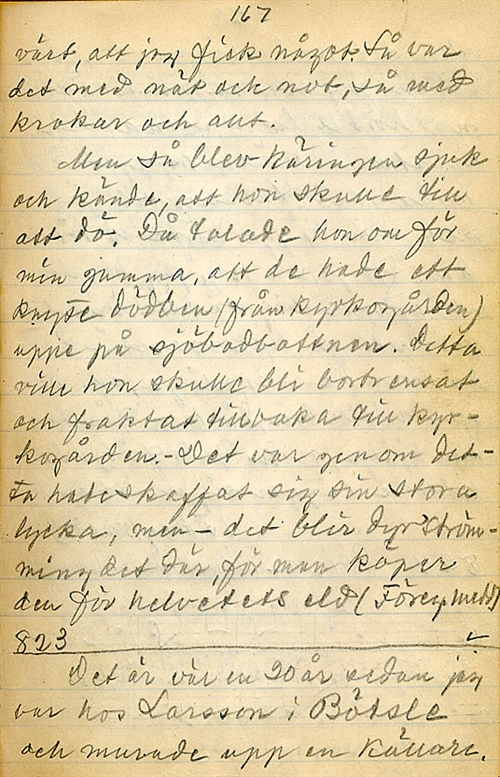 167
värt, att jag fick något. Så var
det med nät och not, så med
krokar och allt.
Men så blev käringen sjuk
och kände, att hon skulle till
att dö. Då talade hon om för
min gumma, att de hade ett
knyte dödben (från kyrkogården)
uppe på sjöbodbottnen. Detta
ville hon skulle bli bortrensat
och fraktat tillbaka till kyr-
kogården. - Det var genom det-
ta hade skaffat sig sin stora
lycka, men - det blir dyr ström-
ming det där, för man köper
den för helvetets eld (Föreg. medd)
823
Det är väl en 20 år sedan jag
var hos Larsson i
och murade upp en källare.